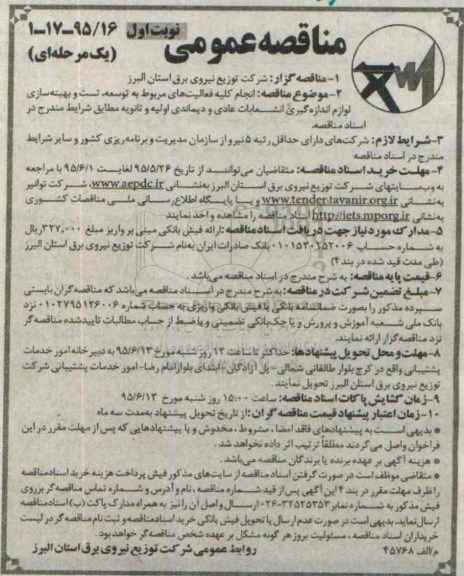 نوبت اول
۹۵/۱۶-۱۷-۱
مناقصه عمومی
(یک مرحله‌ای)
۱-مناقصه گزار: شرکت توزیع نیروی برق استان البرز
۲-موضوع مناقصه: انجام کلیه فعالیت‌های مربوط به توسعه، تست و بهینه‌سازی
لوازم اندازه‌گیری انشعابات عادی و دیماندی اولیه و ثانویه مطابق شرایط مندرج در
اسناد مناقصه.
۳-شرایط لازم: شرکت‌های دارای حداقل رتبه ۵ نیرو از سازمان مدیریت و برنامه‌ریزی کشور و سایر شرایط
مندرج در اسناد مناقصه
۴-مهلت خرید اسناد مناقصه: متقاضیان می‌توانند از تاریخ ۹۵/۵/۲۶ لغایت ۹۵/۶/۱ با مراجعه
به وب‌سایتهای شرکت توزیع نیروی برق استان البرز به‌نشانی www.aepdc.ir، شرکت توانیر
به‌نشانی www.tender.tavanir.org.ir و یا پایگاه اطلاع‌رسانی ملی مناقصات کشوری
به‌نشانی http://iets.mporg.ir اسناد مناقصه را مشاهده و اخذ نمایند
۵-مدارک مورد نیاز جهت دریافت اسناد مناقصه: ارائه فیش بانکی مبنی بر واریز مبلغ ۳۲۷,۰۰۰ریال
به شماره حساب ۰۱۰۱۵۲۰۲۵۲۰۰۶ بانک صادرات ایران به‌نام شرکت توزیع نیروی برق استان البرز
(طی مدت قید شده در بند ۴)
۶-قیمت پایه مناقصه: به شرح مندرج در اسناد مناقصه می‌باشد.
۷-مبلغ تضمین شرکت در مناقصه: به شرح مندرج در اسناد مناقصه می‌باشد که مناقصه‌گران بایستی
سپرده مذکور را بصورت ضمانتنامه بانکی یا فیش بانکی واریزی به حساب شماره ۰۱۰۲۷۹۵۱۲۶۰۰۶ نزد
بانک ملی شعبه آموزش و پرورش و یا چک بانکی تضمینی و یا ضبط از حساب مطالبات تاییدشده مناقصه‌گر
نزد مناقصه‌گزار ارائه نمایند.
۸-مهلت و محل تحویل پیشنهادها: حداکثر تا ساعت ۱۳ روز شنبه مورخ ۹۵/۶/۱۳ به دبیرخانه امور خدمات
پشتیبانی واقع در کرج بلوار طالقانی شمالی-پل آزادگان-ابتدای بلوار امام رضا- امور خدمات پشتیبانی شرکت
توزیع نیروی برق استان البرز تحویل نمایند.
۹-زمان گشایش پاکات اسناد مناقصه: ساعت ۱۵:۰۰ روز شنبه مورخ ۹۵/۶/۱۳
۱۰-زمان اعتبار پیشنهاد قیمت مناقصه گران: از تاریخ تحویل پیشنهاد به‌مدت سه ماه
* بدیهی است به پیشنهادهای فاقد امضا، مشروط، مخدوش و یا پیشنهادهایی که پس از مهلت مقرر در این
فراخوان واصل می‌گردند مطلقاً ترتیب اثر داده نخواهد شد.
* هزینه آگهی بر عهده برنده یا برندگان مناقصه می‌باشد.
* متقاضی موظف است در صورت گرفتن اسناد مناقصه از سایت‌های مذکور فیش پرداخت هزینه خرید اسناد مناقصه
را ظرف مهلت مقرر در بند ۴ این آگهی پس از قید شماره مناقصه، نام و آدرس و شماره تماس مناقصه‌گر بر روی
فیش مذکور به شماره نمابر ۳۲۵۲۵۳۵۳-۰۲۶ ارسال و اصل آن را نیز به همراه مدارک پاکت (ب) اسناد مناقصه
ارسال نماید. بدیهی است در صورت عدم ارسال یا تحویل فیش بانکی خرید اسناد مناقصه و ثبت نام مناقصه‌گر در لیست
خریداران اسناد مناقصه، مسئولیت بروز هر گونه مشکل بر عهده شخص مناقصه‌گر خواهد بود.
م/الف ۴۵۷۶۸
روابط عمومی شرکت توزیع نیروی برق استان البرز